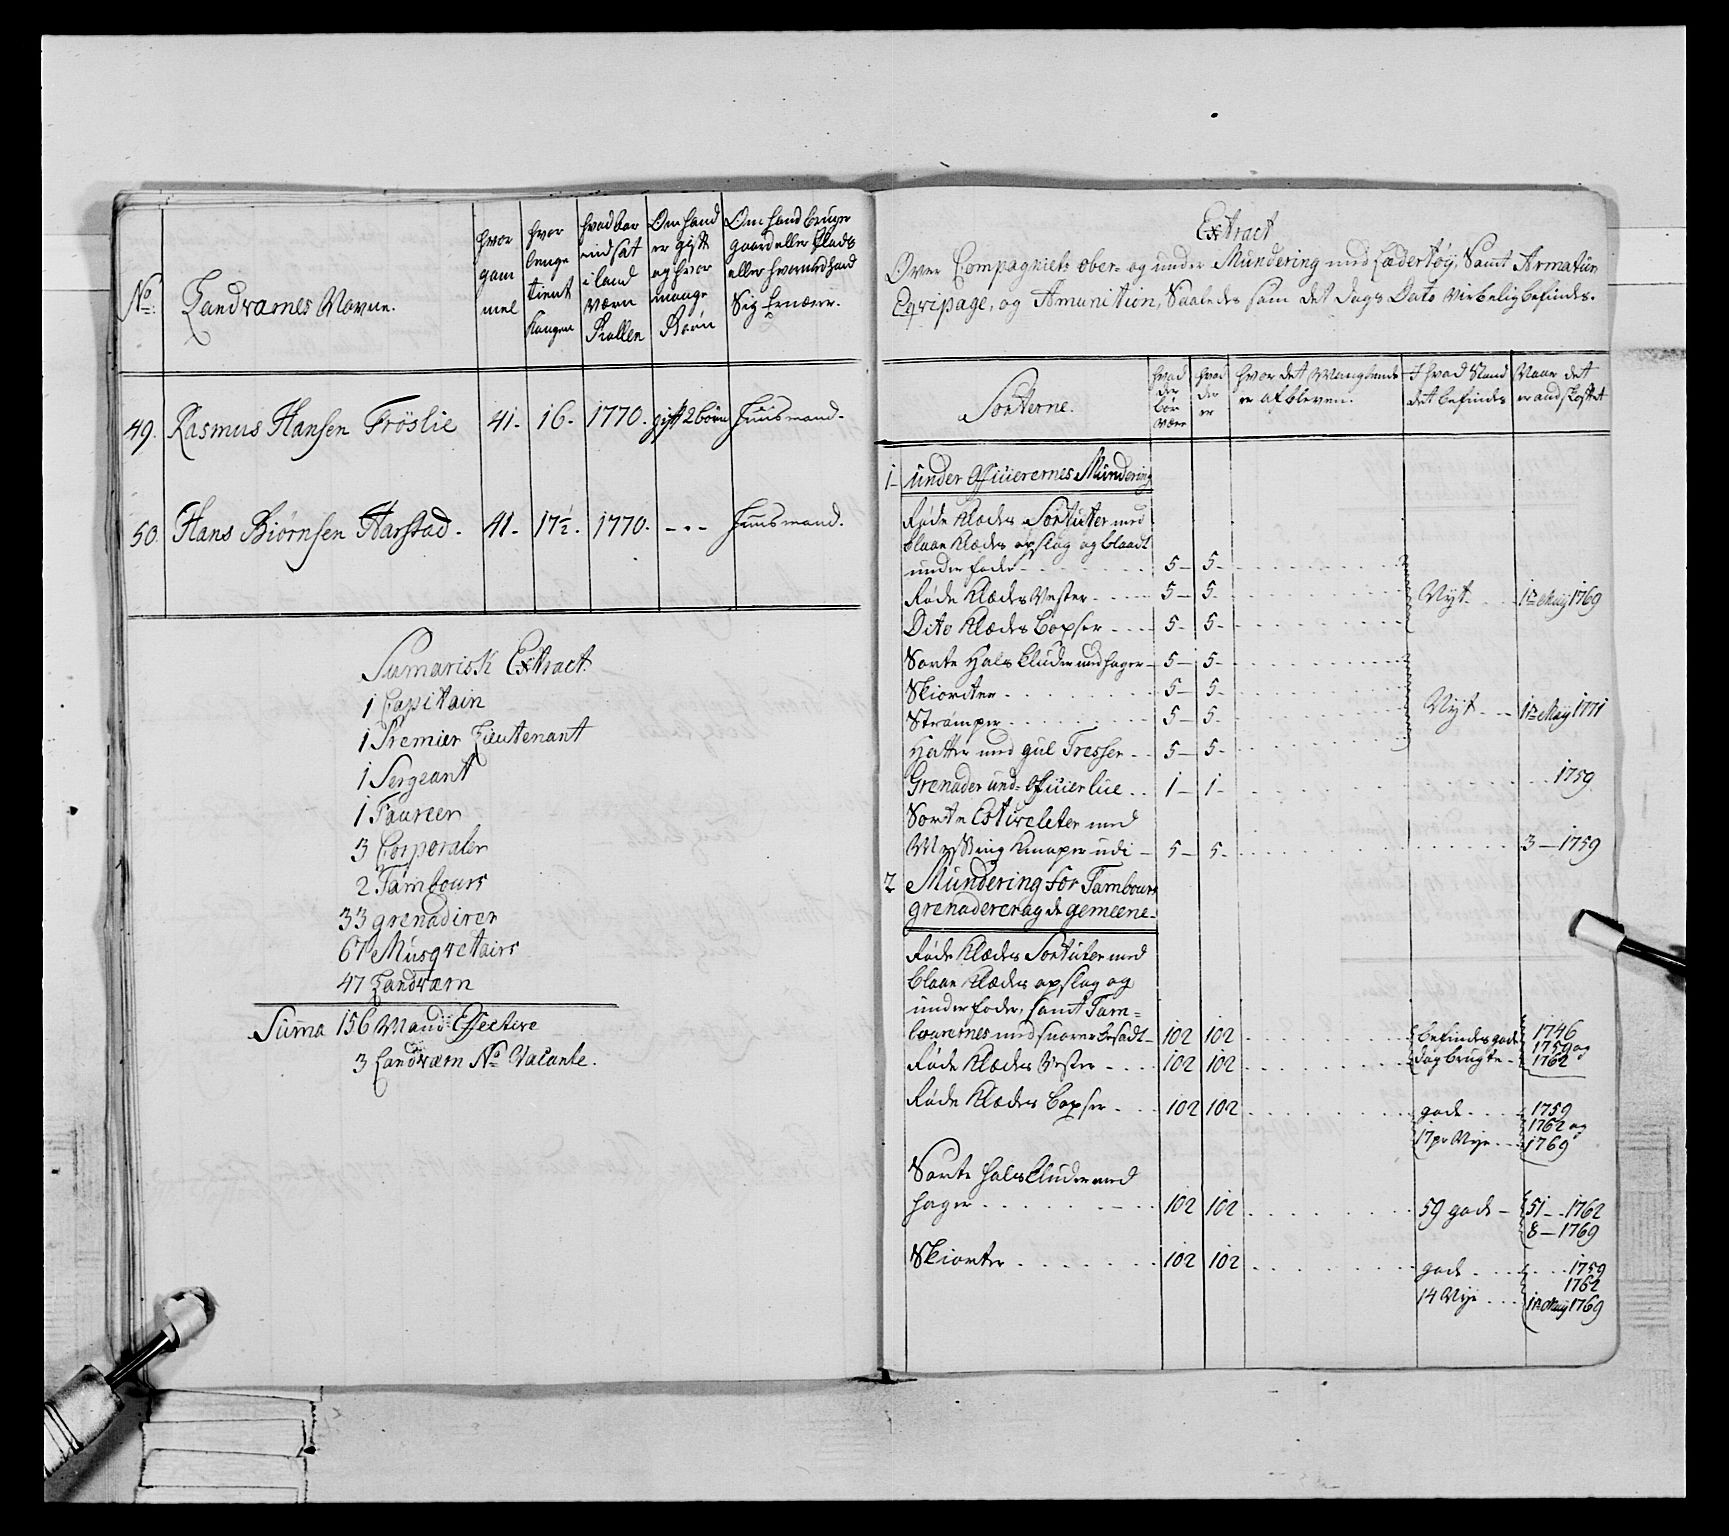 No:
Landværnes Navne.
hvor gam mel
hvor lenge tient Kongen
hvad har indsat i land værn Rollen
Om hand er gift og hvor mange Børn
Om hand bruger gaard eller Plads eller hvormed hand Sig Ernærer.
49. Rasmus Hansen Fröslie 41. 16. 1770. gift 2 børn Huusmand.
50. Hans Biörnsen Harstad. 41. 17½. 1770. - - - Huusmand.
Sumarisk Extract.
1 Capitain
1 Premier Lieutenant
1 Sergeant
1 Foureer
3 Corporaler
2 Tambours
33 grenadirer
67 Musqvetairs
47 Landværn
Suma 156 Mand Effective
3 Landværn No Vacante.
Extract
Over Compagniets ober- og under Mundering med Lædertöy, Samt Armatur
Eqvipage, og Amunition, Saaledes som det Dags Dato virkelig befindes.
Sorterne.
hvad der bör være
hvad der er
hvor det Manglende er afbleven.
I hvad Stand det befindes
Naar det er andskaffet
1 under Officerernes Mundering
Røde Klædes Sortuter med
blaae Klædes opslag og blaadt
under foder 5 - 5 -
Røde Klædes Vester 5 - 5 - Nyt 12 Maÿ 1769
Dito Klædes boxser 5 - 5 -
Sorte Hals Kluder med hager 5 - 5 -
Skiorter 5 - 5 -
Strömper 5 - 5 - Nyt 12 Maÿ 1771
Hatter med gul Tresser 5 - 5 -
Grenader und: Officer hue 1 - 1 - 1759
Sorte Estiveletter med
Messing Knaper udi 5 - 5 - 3 - 1759
2 Mundering for Tambours
grenaderer og de gemeene
Røde Klædes Sortuter med
blaae Klædes opslag og
under foder, samt Tam-
bourernes med snorer besadt 102 102 befindes gode 1746
1759 og
Røde Klædes Vester 102 102 dog brugte 1762
Røde Klædes boxser 102 102 gode 1759
1762 og
17 pr Nye 1769
Sorte hals Kluder med
hager 102 102 59 gode 51 - 1762
8 - 1769
Skiorter 102 102 gode 1759
1762
14 Nye 12 Maÿ 1769